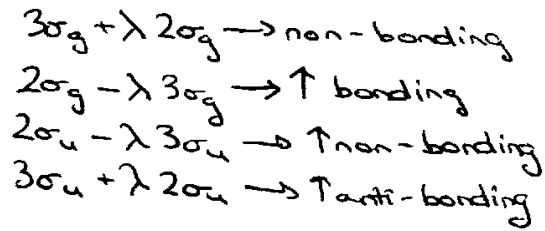 3σg + λ 2σg → non-bonding
2σg - λ 3σg → ↑ bonding
2σu - λ 3σu → ↑ non-bonding
3σu + λ 2σu → ↑ anti-bonding